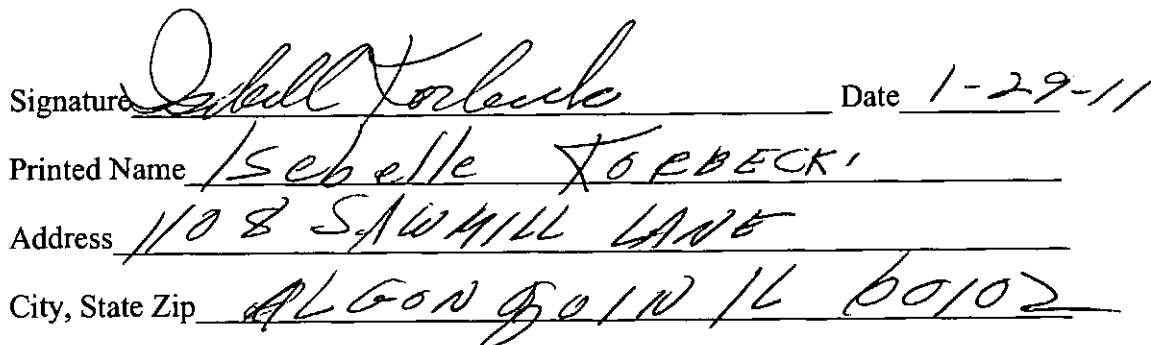 Signature Isabell Torbecki Date 1-29-11
Printed Name Isebelle TORBECKI
Address 1108 SAWMILL LANE
City, State Zip ALGONQOIN IL 60102